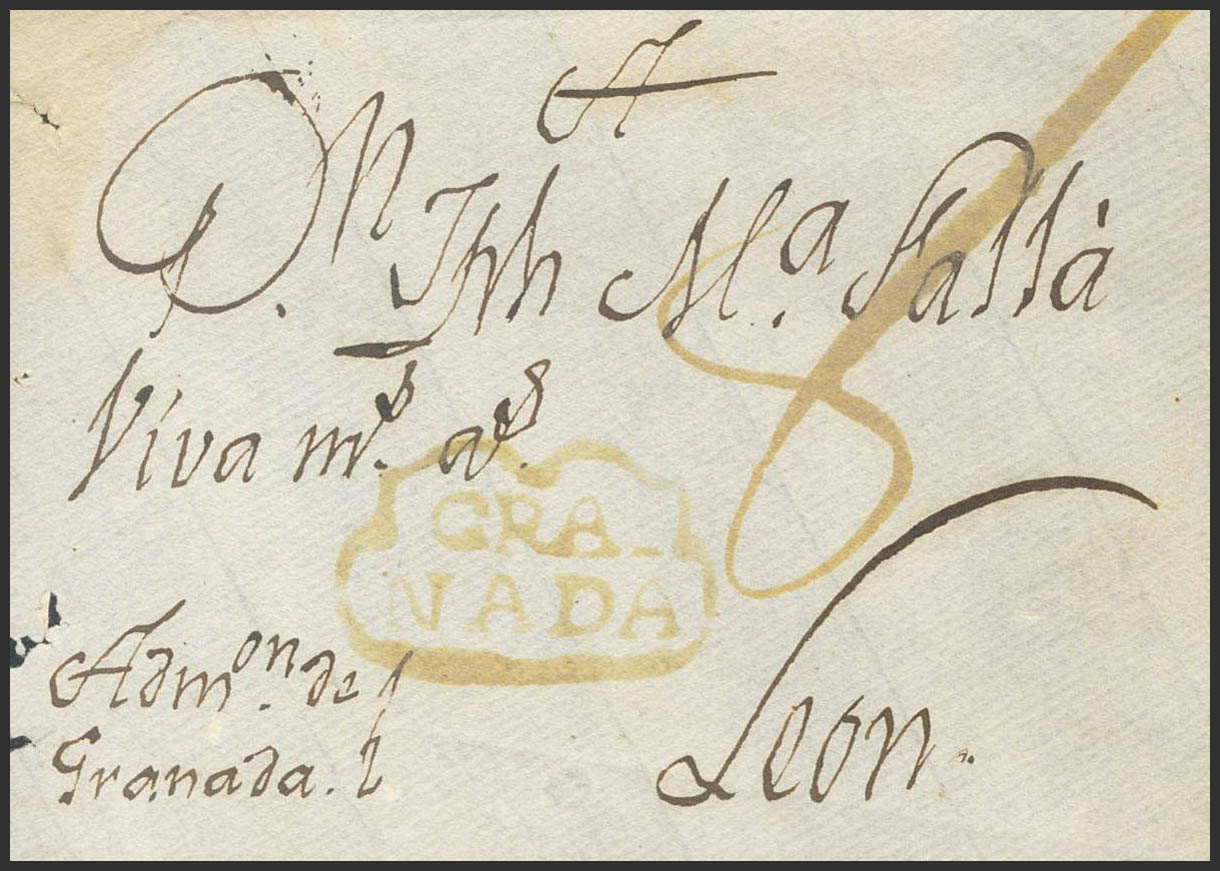 A
Dn. Jph Ma. Sallà
Viva ms. as.
GRA_
NADA
Admon. de
Granada.
Leon.